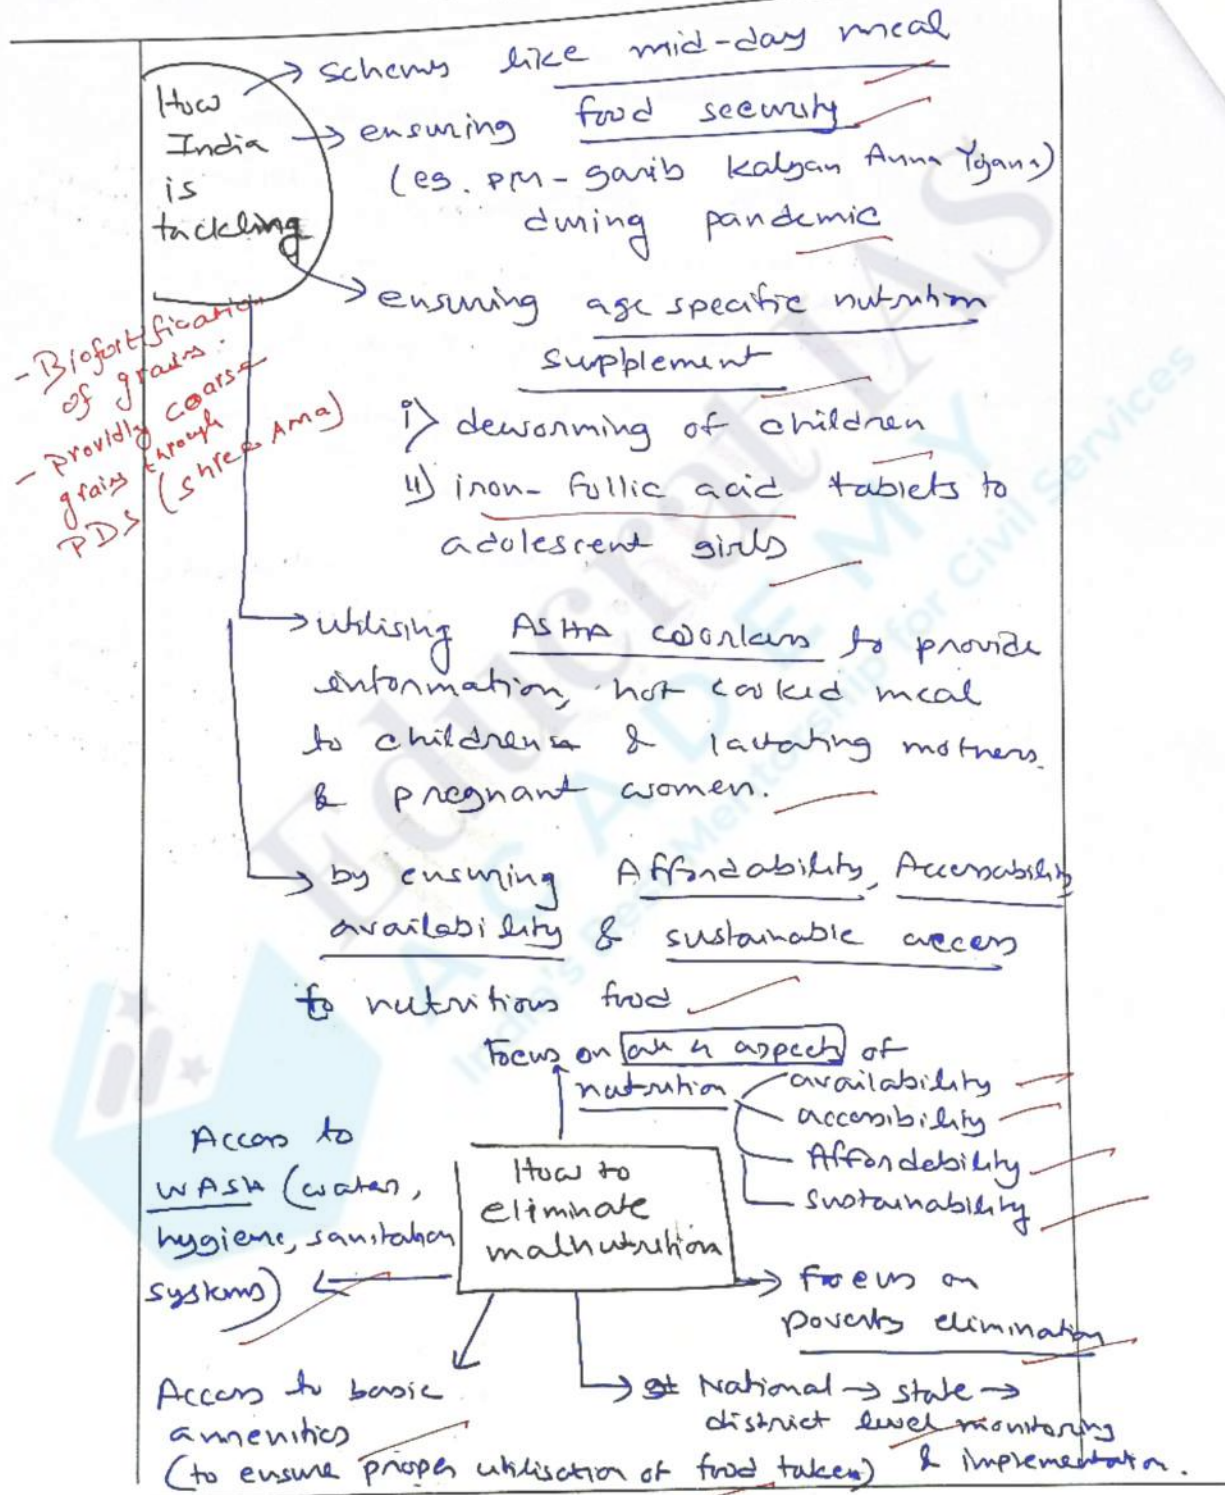 How
India
is
tackling
→ schems like mid-day meal
→ ensuring food security
(eg. PM-garib kalyan Anna Yojana)
during pandemic
→ ensuring age specific nutrition
supplement
i) deworming of children
ii) iron-follic acid tablets to
adolescent girls
- Biofortification
of grains.
- providing coarse
grains through
PDS (shree Anna)
→ utilising ASHA workers to provide
information, hot cooked meal
to childrens & lactating mothers
& pregnant women.
→ by ensuring Affordability, Accessability
availability & sustainable access
to nutritious food
Focus on all 4 aspects of
nutrition
availability
accessibility
Affordebility
sustainability
How to
eliminate
malnutrition
Access to
WASH (water,
hygiene, sanitation
systems)
→ Focus on
poverty elimination
Access to basic
ammenities
(to ensure proper utilisation of food taken)
→ National → state →
district level monitoring
& implementation.
Educrat IAS
ACADEMY
India's Best Mentorship for Civil Services